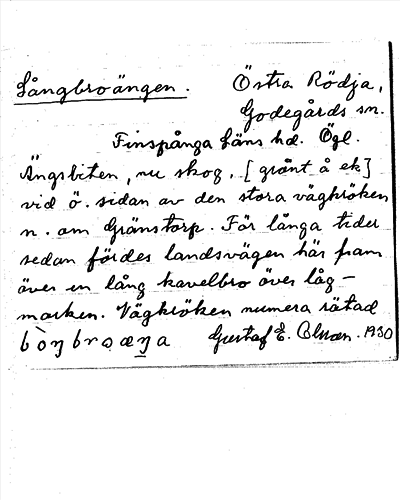 Långbroängen. Östra Rödja,
Godegårds sn.
Finspånga Läns hd. Ögl.
Ängsbiten, nu skog, [grönt å ek]
vid ö. sidan av den stora vägkröken
n. om Gränstorp. För långa tider
sedan fördes landsvägen här fram
över en lång kavelbro över låg-
marken. Vägkröken numera rätad
Gustaf E. Olsson. 1930